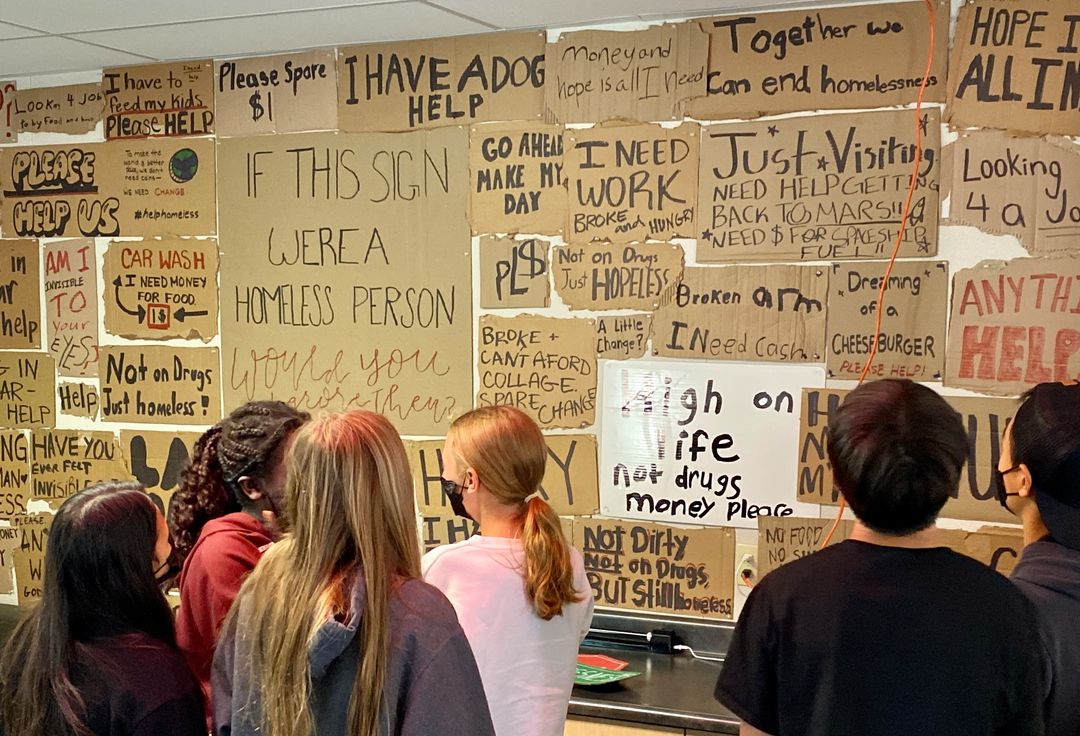 ?
Lookn 4 Job
to by Food and
I have to
feed my kids
Please HELP
Please Spare
$1
I HAVE A DOG
HELP
Money and
hope is all I need
Together we
can end homelessness
HOPE I
ALL I N
PLEASE
HELP US
To make the
world a better
place, we don't
need coins-
WE NEED CHANGE
#helphomeless
IF THIS SIGN
WERE A
HOMELESS PERSON
would you
ignore them?
GO AHEAD
MAKE MY
DAY
I NEED
WORK
BROKE and HUNGRY
Just Visiting
NEED HELP GETTING
BACK TO MARS!!
NEED $ FOR SPACESHIP
FUEL!!
Looking
4 a Jo
in
help
AM I
INVISIBLE
TO
your
EYES
CAR WASH
I NEED MONEY
FOR FOOD
1$
PL$
Not on Drugs
Just HOPELESS
Broken arm
I Need Cash
Dreaming
of a
CHEESEBURGER
PLEASE HELP!
ANYTHI
HELP
G IN
AR-
HELP
Help
Not on Drugs
Just homeless!
BROKE +
CANT AFFORD
COLLAGE.
SPARE CHANGE
A Little
Change?
High on
life
not drugs
money please
NG
MAN
ESS
HAVE YOU
EVER FELT
INVISIBLE
LA
H RY
I H
H
N
M
U
PLEASE
AN
NO FOOD
NO SH
Not Dirty
Not on Drugs
BUT Still homeless